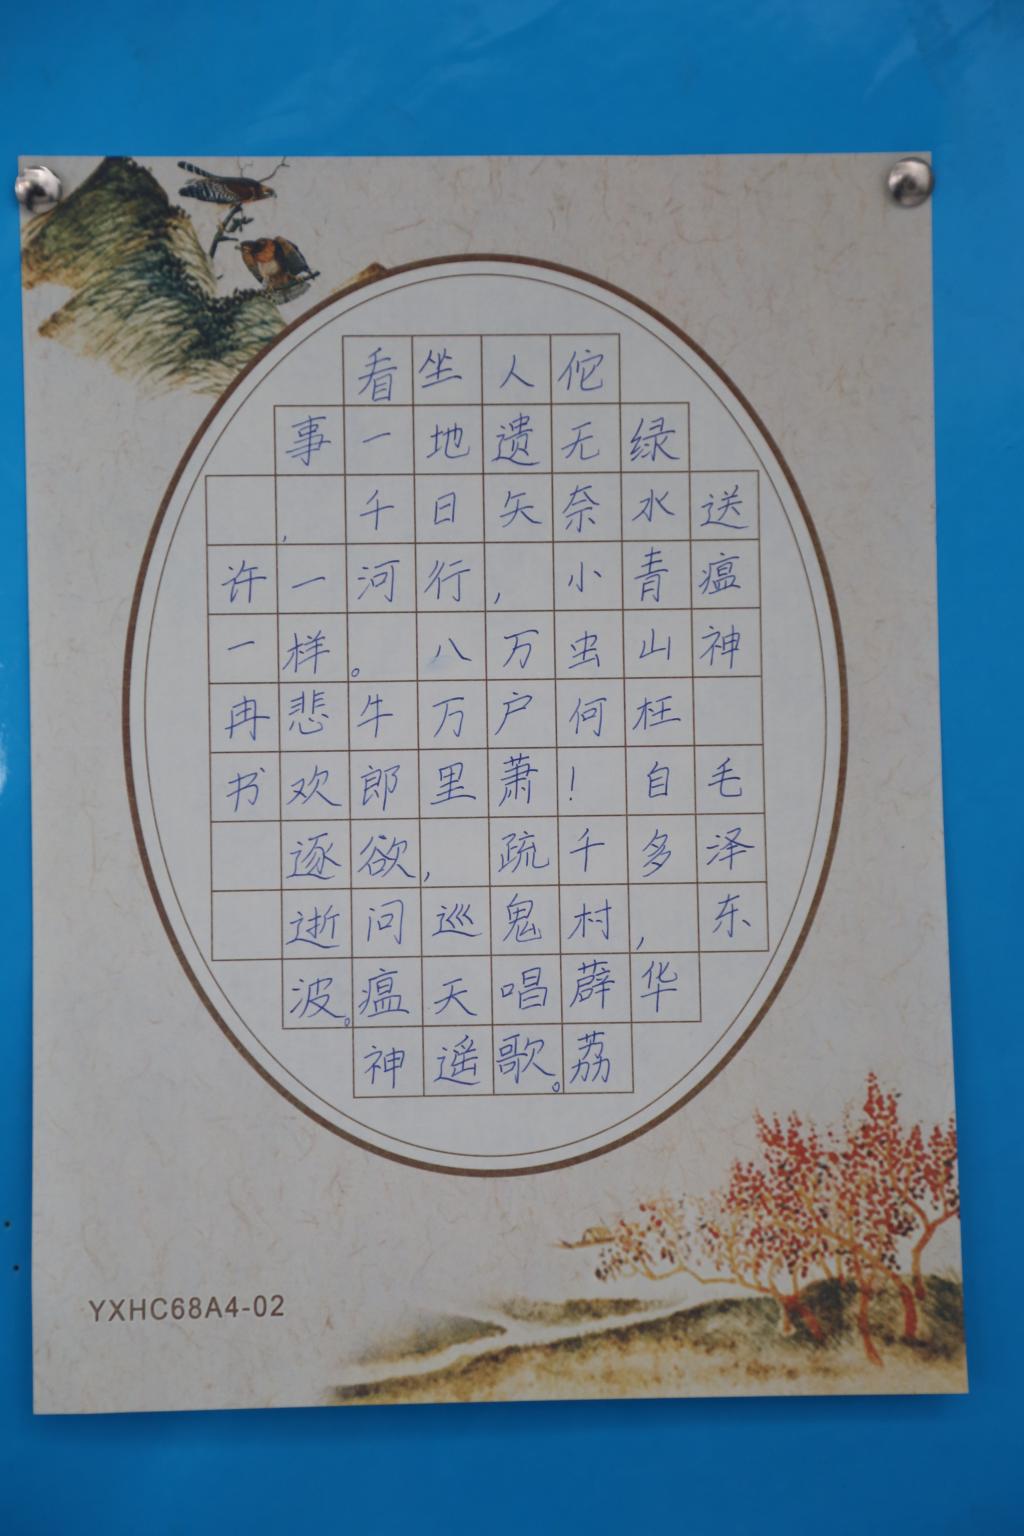 送瘟神 毛泽东
绿水青山枉自多，华
佗无奈小虫何！千村薜荔
人遗矢，万户萧疏鬼唱歌。
坐地日行八万里，巡天遥
看一千河。牛郎欲问瘟神
事，一样悲欢逐逝波。
许一冉书
YXHC68A4-02